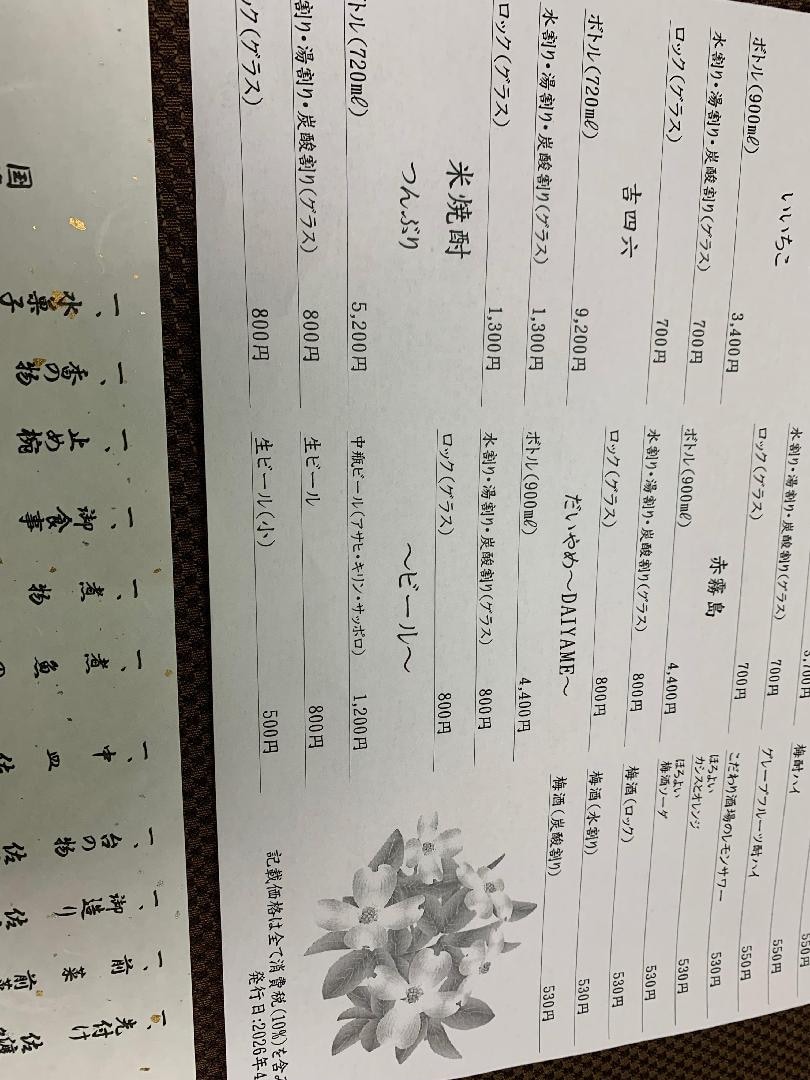 いいちこ
ボトル(900㎖) 3,400円
水割り・湯割り・炭酸割り(グラス) 700円
ロック(グラス) 700円
吉四六
ボトル(720㎖) 9,200円
水割り・湯割り・炭酸割り(グラス) 1,300円
ロック(グラス) 1,300円
米焼酎
つんぶり
トル(720㎖) 5,200円
割り・湯割り・炭酸割り(グラス) 800円
ック(グラス) 800円
3,700円
水割り・湯割り・炭酸割り(グラス) 700円
ロック(グラス) 700円
赤霧島
ボトル(900㎖) 4,400円
水割り・湯割り・炭酸割り(グラス) 800円
ロック(グラス) 800円
だいやめ～DAIYAME～
ボトル(900㎖) 4,400円
水割り・湯割り・炭酸割り(グラス) 800円
ロック(グラス) 800円
～ビール～
中瓶ビール(アサヒ・キリン・サッポロ) 1,200円
生ビール 800円
生ビール(小) 500円
550円
梅酎ハイ 550円
グレープフルーツ酎ハイ 550円
こだわり酒場のレモンサワー 530円
ほろよい
カシスとオレンジ 530円
ほろよい
梅酒ソーダ 530円
梅酒(ロック) 530円
梅酒(水割り) 530円
梅酒(炭酸割り) 530円
記載価格は全て消費税(10%)を含み
発行日:2026年4
一、先付け 佐
一、前菜 前菜
一、御造り 佐
一、台の物 佐
一、中皿 佐
一、煮魚 の
一、煮物
一、御食事
一、止め椀
一、香の物
一、水菓子
国